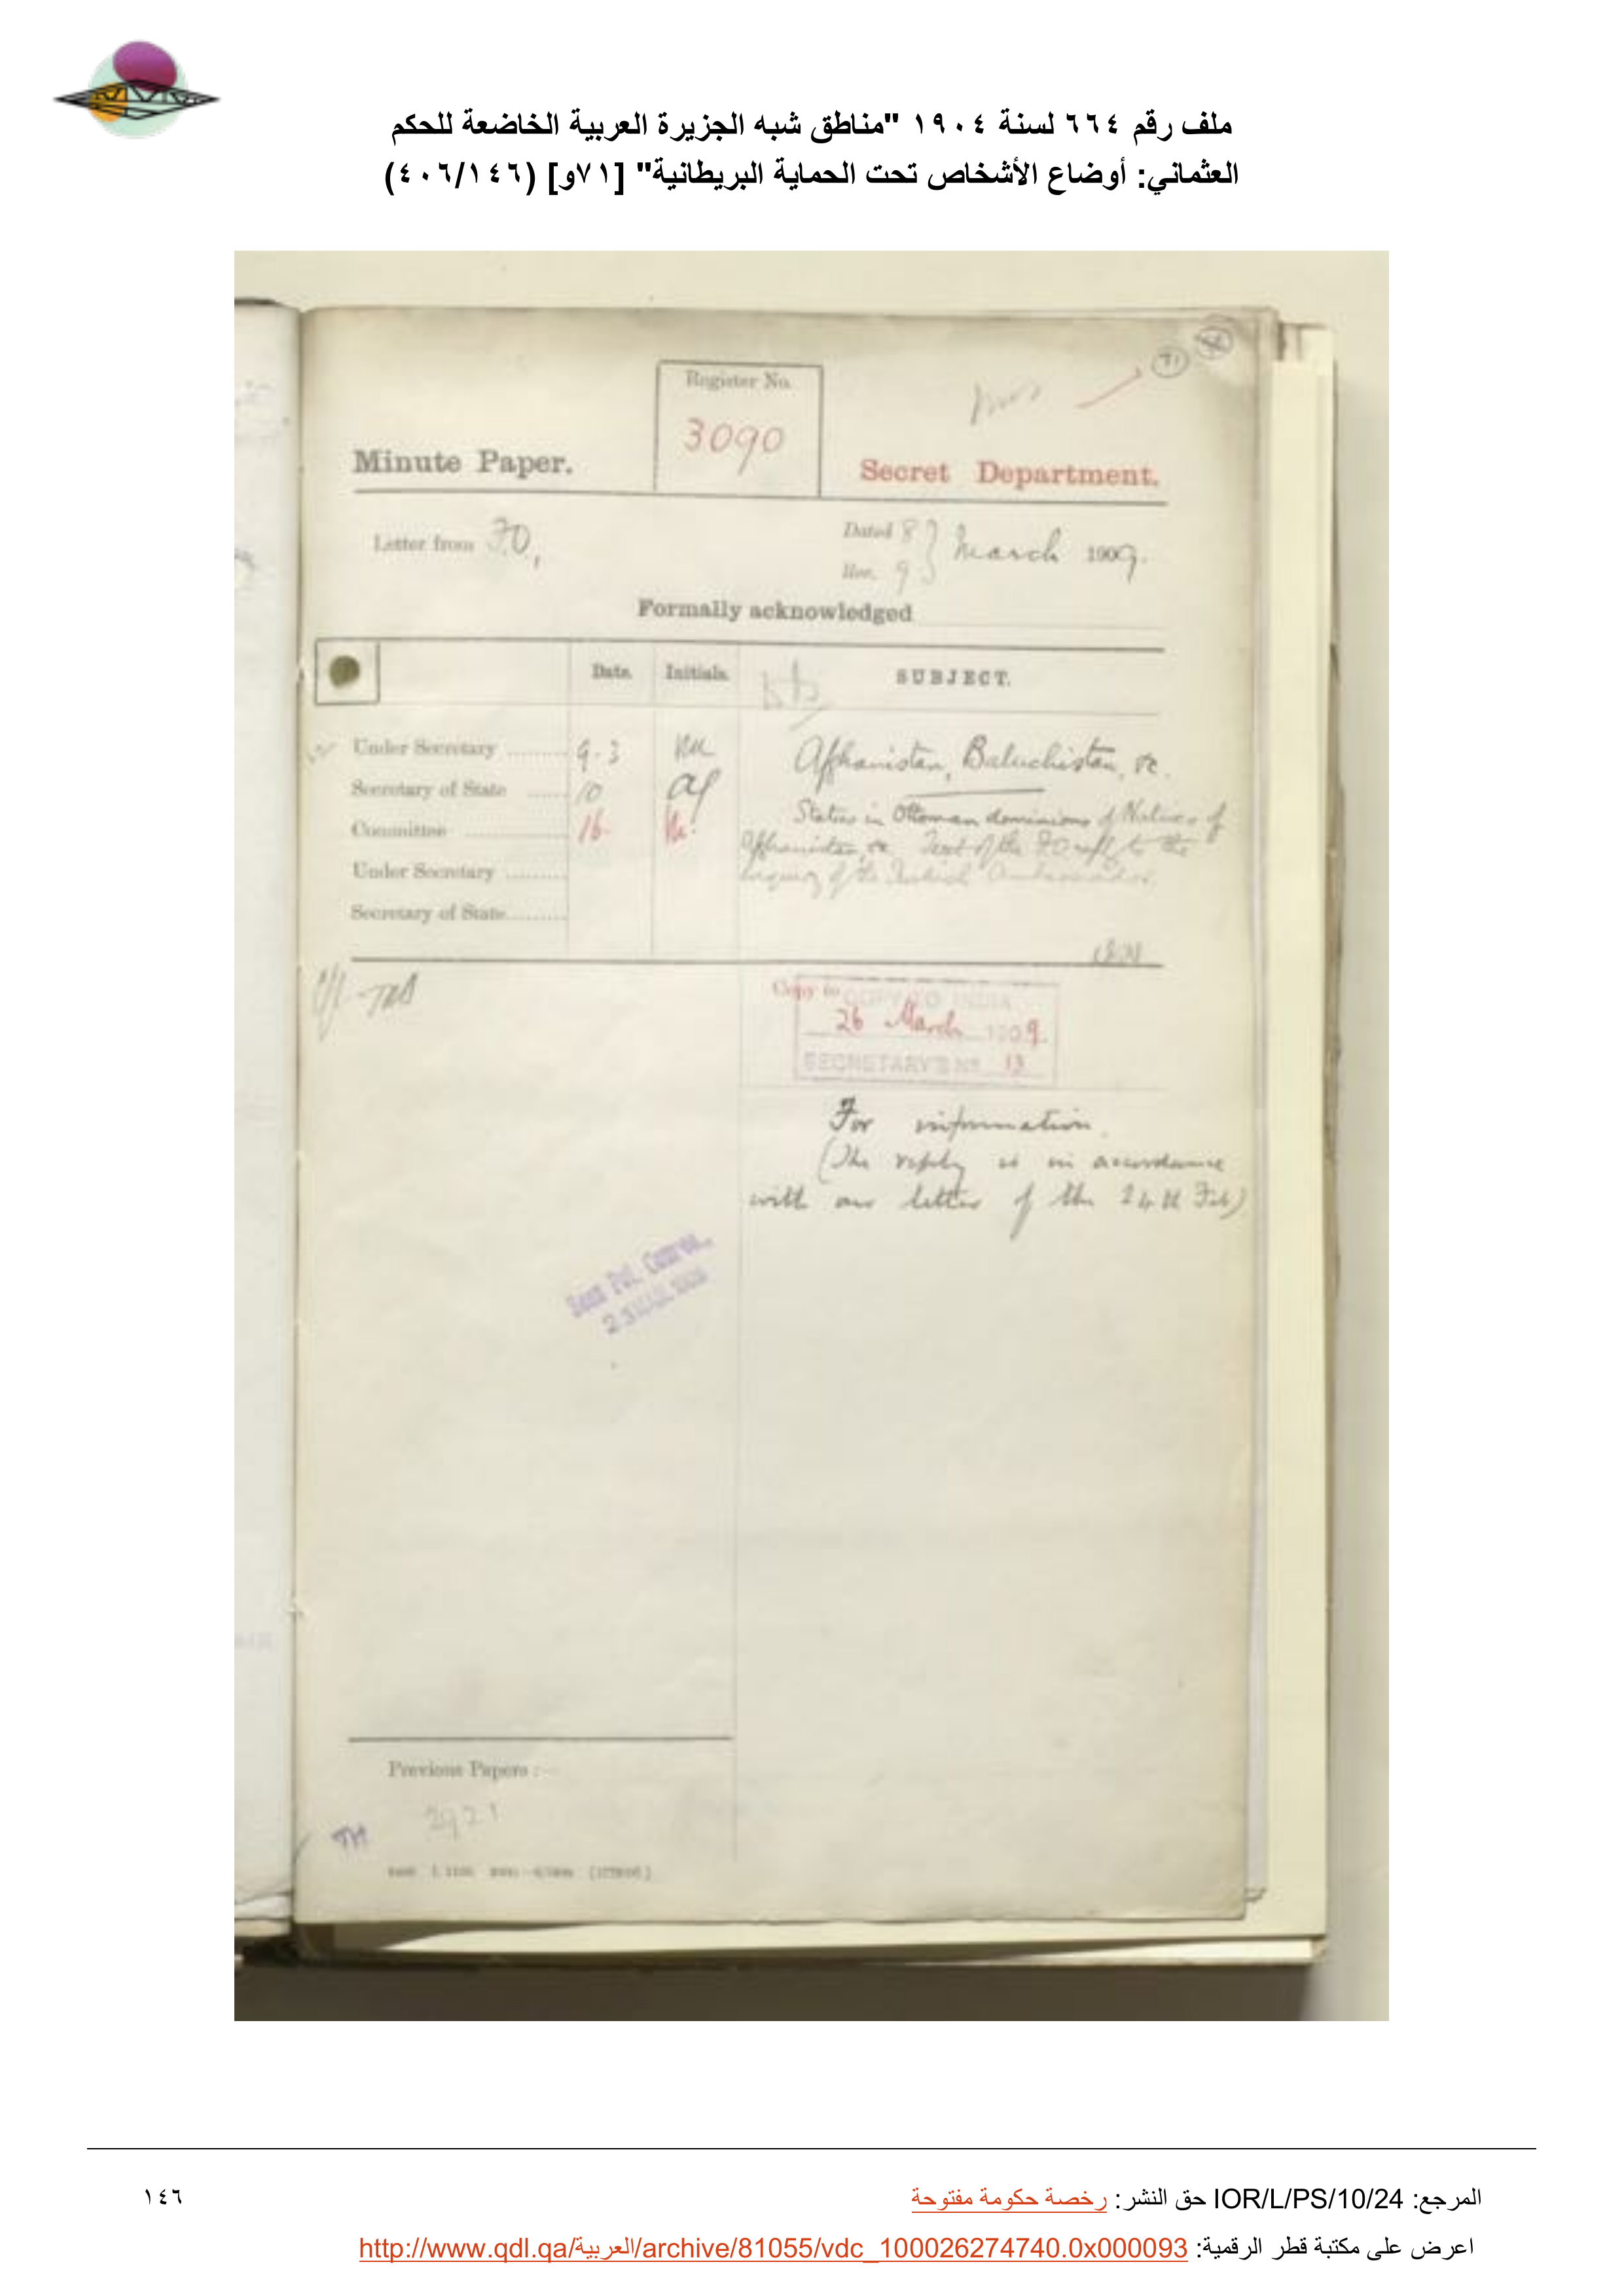 ملف رقم ٦٦٤ لسنة ١٩٠٤ "مناطق شبه الجزيرة العربية الخاضعة للحكم
العثماني: أوضاع الأشخاص تحت الحماية البريطانية" [٧١و] (٤٠٦/١٤٦)
71
Register No.
3090
Minute Paper.
Secret Department.
Letter from F.O,
Dated 8
Rec. 9
March 1909.
Formally acknowledged
Date. Initials. SUBJECT.
Under Secretary 9.3
Secretary of State 10
Committee 16
Under Secretary
Secretary of State
Afghanistan, Baluchistan, &c.
Status in Ottoman dominions of Natives of
Afghanistan, &c. Text of the FO reply to the
inquiry of the Turkish Ambassador.
Copy to
COPY TO INDIA
26 March 1909.
SECRETARY'S No 13
For information.
(The reply is in accordance
with our letter of the 24th Feb)
Seen Pol. Comtee.,
23 MAR 1909
Previous Papers :—
2921
المرجع: IOR/L/PS/10/24 حق النشر: رخصة حكومة مفتوحة
١٤٦
اعرض على مكتبة قطر الرقمية: http://www.qdl.qa/العربية/archive/81055/vdc_100026274740.0x000093